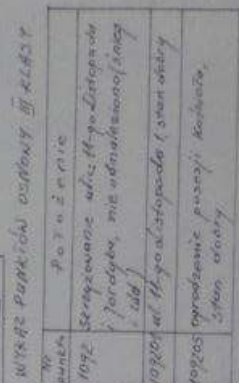 WYKAZ PUNKTÓW OSNOWY III KLASY
Nr punktu
Położenie
1092
skrzyżowanie ulic: 11-go Listopada
i Jordyka, nie odnaleziono (śnieg
i lód)
109204
ul. 11-go Listopada, stan dobry
109205
ogrodzenie posesji Kościoła,
stan dobry